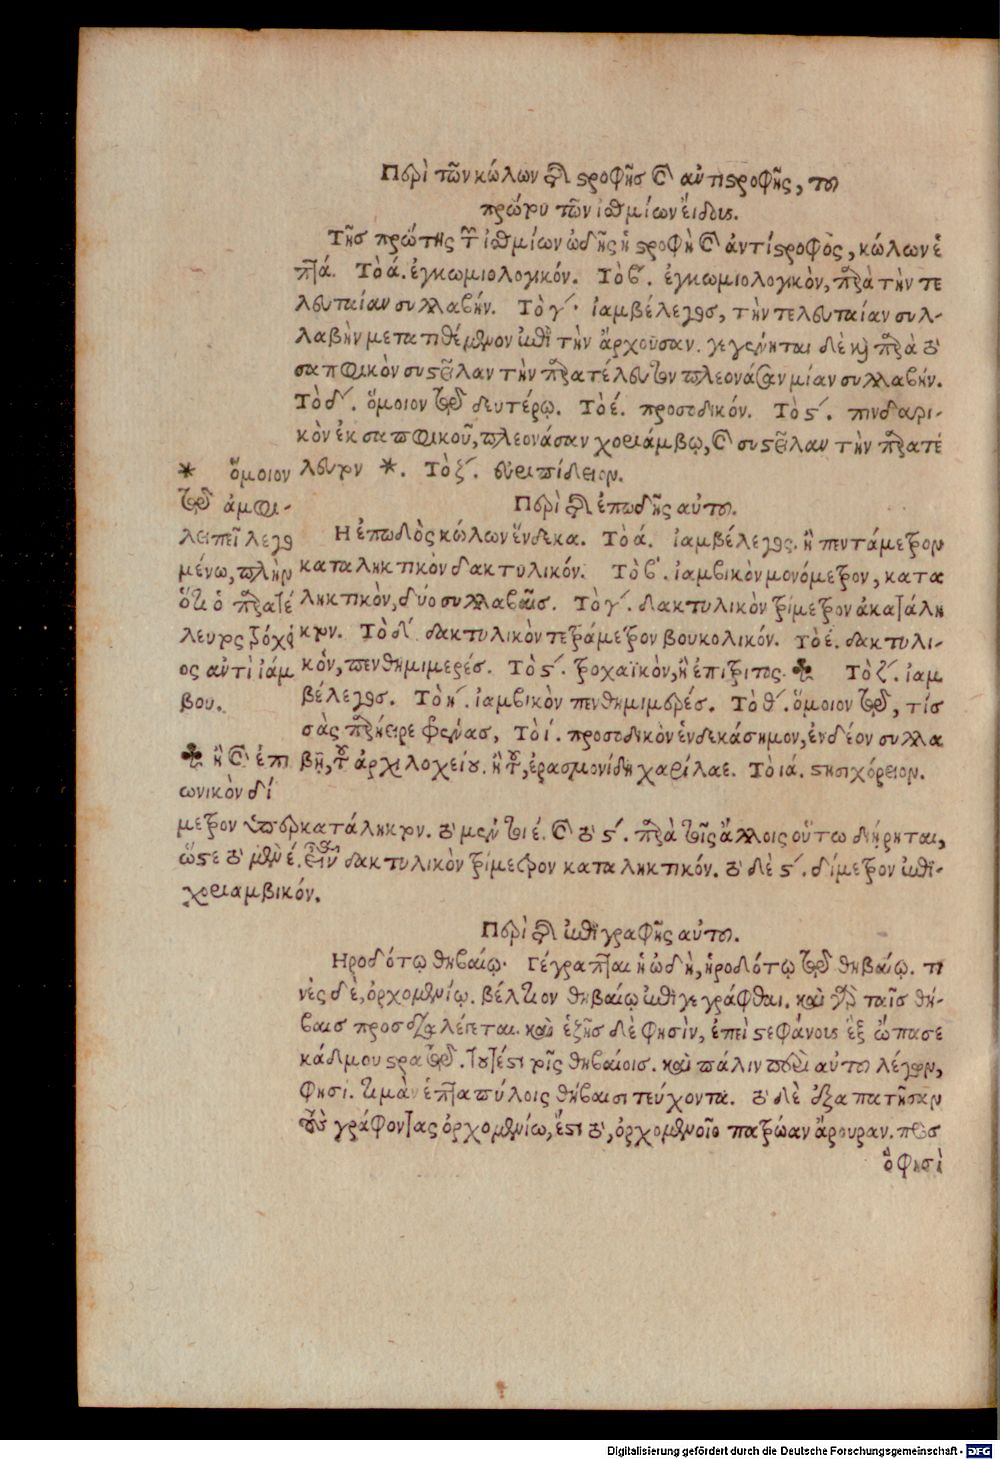 Περὶ τῶν κώλων τῆς στροφῆσ καὶ ἀντιστροφῆς, τοῦ
πρώτου τῶν ἰσθμίων εἴδους.
Τῆσ πρώτης τῶν ἰσθμίων ὠδῆς ἡ στροφὴ καὶ ἀντίστροφὸς, κώλων ἑ
πτά. Τὸ ά. ἐγκωμιολογικόν. Τὸ β΄. ἐγκωμιολογικὸν, παρὰ τὴν τε
λευταίαν συλλαβήν. Τὸ γ΄. ἰαμβέλεγος, τὴν τελευταίαν συλ-
λαβὴν μετατιθέμενον ἐπὶ τὴν ἄρχουσαν. γεγένηται δὲ καὶ παρὰ τὸ
σαπφικὸν συστεῖλαν τὴν παρατέλευτον πλεονάσαν μίαν συλλαβήν.
Τὸ δ΄. ὅμοιον τῷ δευτέρῳ. Τὸ έ. προσοδικόν. Τὸ ϛ΄. πινδαρι-
κὸν ἐκ σαπφικοῦ, πλεονάσαν χοριάμβῳ, καὶ συστεῖλαν τὴν παρατέ
λευτον *. Τὸ ζ΄. εὐριπίδειον.
Περὶ τῆς ἐπωδῆς αὐτοῦ.
Η ἐπωδὸς κώλων ἕνδεκα. Τὸ ά. ἰαμβέλεγος. ἢ πεντάμετρον
καταληκτικὸν δακτυλικόν. Τὸ β΄. ἰαμβικὸν μονόμετρον, κατα
ληκτικὸν, δύο συλλαβαῖς. Τὸ γ΄. δακτυλικὸν τρίμετρον ἀκατάλη
κτον. Τὸ δ΄. δακτυλικὸν τετράμετρον βουκολικόν. Τὸ έ. δακτυλι-
κὸν, πενθημιμερές. Τὸ ϛ΄. τροχαϊκὸν, ἢ ἐπίτριτος. ♣ Τὸ ζ΄. ἰαμ
βέλεγος. Τὸ η΄. ἰαμβικὸν πενθημιμερές. Τὸ θ΄. ὅμοιον τῷ, τίσ
σὰς παρήειρε φρένας, Τὸ ί. προσοδικὸν ἑνδεκάσημον, ἐνδέον συλλα
βῇ, τοῦ ἀρχιλοχείου. ἢ τοῦ, ἐρασμονίδη χαρίλαε. Τὸ ιά. στησιχόρειον.
* ὅμοιον
τῷ ἀμφι-
λειπεῖ λεγο
μένω, πλὴν
ὅτι ὁ παρατέ
λευτος τρόχαῖ
ος αὐτὶ ἰάμ
βου.
♣ ἢ καὶ ἐπι
ωνικὸν δί
μετρον ὑπερκατάληκτον. τὸ μὲν τοι έ. καὶ τὸ ϛ΄. παρὰ τοῖς ἄλλοις οὕτω διῄρηται,
ὥστε τὸ μὲν έ. εἶναι δακτυλικὸν τρίμετρον καταληκτικόν. τὸ δὲ ϛ΄. δίμετρον ἐπι-
χοριαμβικόν.
Περὶ τῆς ἐπιγραφῆς αὐτοῦ.
Ηροδότῳ θηβαίῳ. Γέγραπται ἡ ὠδὴ, ἡροδότῳ τῷ θηβαίῳ. τι
νὲς δὲ, ὀρχομενίῳ. βέλτιον θηβαίῳ ἐπιγεγράφθαι. καὶ γὰρ ταῖσ θή-
βαισ προσδιαλέγεται. καὶ ἑξῆς δὲ φησὶν, ἐπεὶ στεφάνους ἓξ ὤπασε
κάδμου στρατῷ. τουτέστι τοῖς θηβαίοισ. καὶ πάλιν περὶ αὐτοῦ λέγων,
φησί. τιμὰν ἑπταπύλοις θήβαισι τεύχοντα. τὸ δὲ ἐξαπατῆσαν
τοὺς γράφοντας ὀρχομενίω, ἔστι τὸ, ὀρχομενοῖο πατρώαν ἄρουραν. πρὸσ
ὅ φησὶ
Digitalisierung gefördert durch die Deutsche Forschungsgemeinschaft - DFG